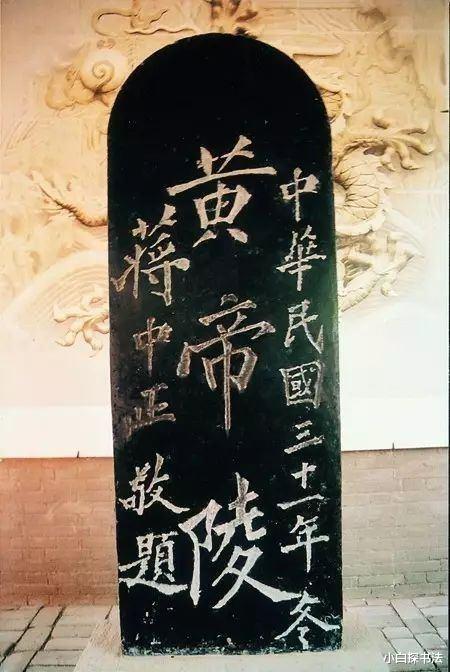 中華民國三十一年冬
黃帝陵
蔣中正敬題
小白探书法